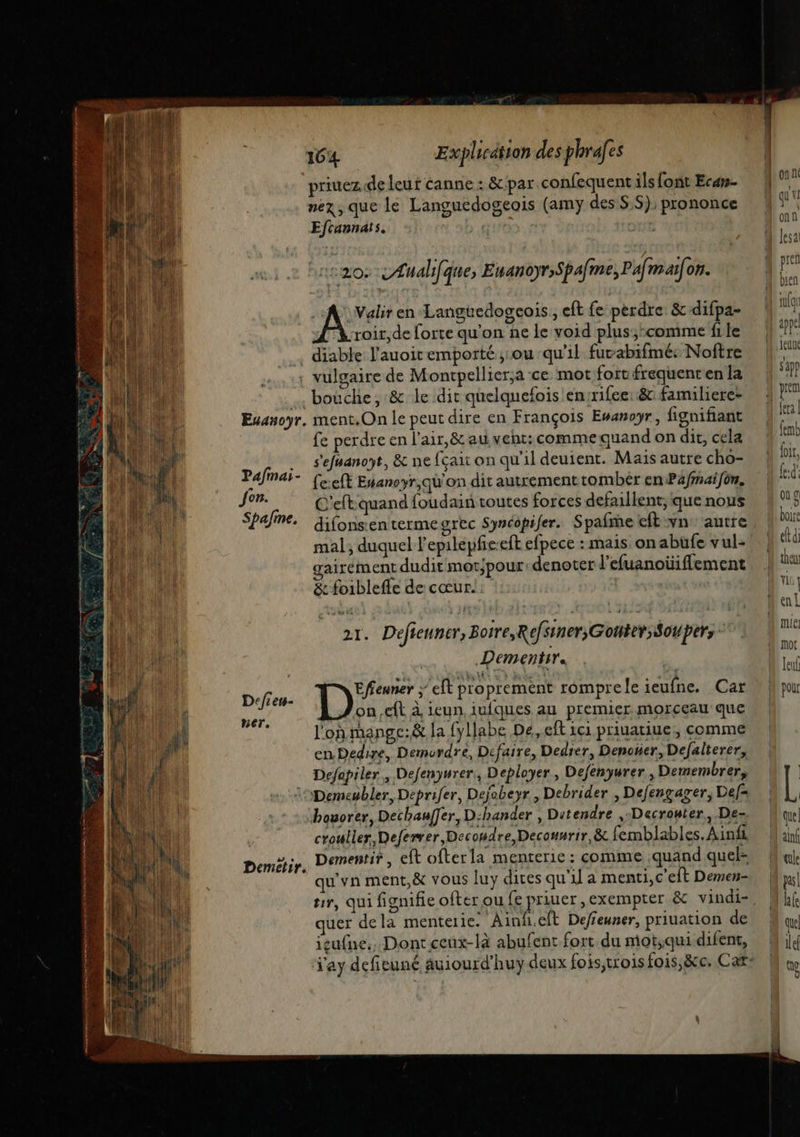 164 Explication des phrases
priuez de leur canne : & par consequent ils sont Ecan-
nez, que le Languedogeois (amy des S.S). prononce
Escannats.
20. Aualisque, Euanoyr, Spasme, Pasmaison.
AValir en Languedogeois, est se perdre & dispa-
roir, de sorte qu'on ne le void plus, comme si le
diable l'auoit emporté, ou qu'il fut abismé. Nostre
vulgaire de Montpellier, a ce mot fort frequent en la
bouche, & le dit quelquefois en risee & familiere-
Euanoyr. ment. On le peut dire en François Euanoyr, signifiant
se perdre en l'air, & au vent: comme quand on dit, cela
s'esuanoyt, & ne sçait on qu'il deuient. Mais autre cho-
Pasmai- se est Euanoyr, qu'on dit autrement tomber en Pasmaison.
son. C'est quand soudain toutes forces defaillent, que nous
Spasme. disons en terme grec Syncopiser. Spasme est vn autre
mal, duquel l'epilepsie est espece : mais on abuse vul-
gairement dudit mot, pour denoter l'esuanoüissement
& foiblesse de cœur.
21. Desieuner, Boire, Ressiner, Gouster, Souper,
Dementir.
DEsieuner, est proprement rompre le ieusne. Car
Desieu- on est à ieun iusques au premier morceau que
ner. l'on mange: & la syllabe De, est ici priuatiue, comme
en Dedire, Demordre, Defaire, Dedier, Denouer, Desalterer,
Desopiler, Desenyurer, Deployer, Desenyurer, Demembrer,
Demeubler, Depriser, Desobeyr, Debrider, Desengager, Des-
honorer, Dechausser, Debander, Detendre, Decrouter, De-
crouller, Deserrer, Decoudre, Decouurir, & semblables. Ainsi
Demẽtir. Dementir, est oster la menterie : comme quand quel-
qu'vn ment, & vous luy dites qu'il a menti, c'est Demen-
tir, qui signifie oster ou se priuer, exempter & vindi-
quer de la menterie. Ainsi est Desieuner, priuation de
ieusne. Dont ceux-là abusent fort du mot, qui disent,
i'ay desieuné auiourd'huy deux fois, trois fois, &c. Car